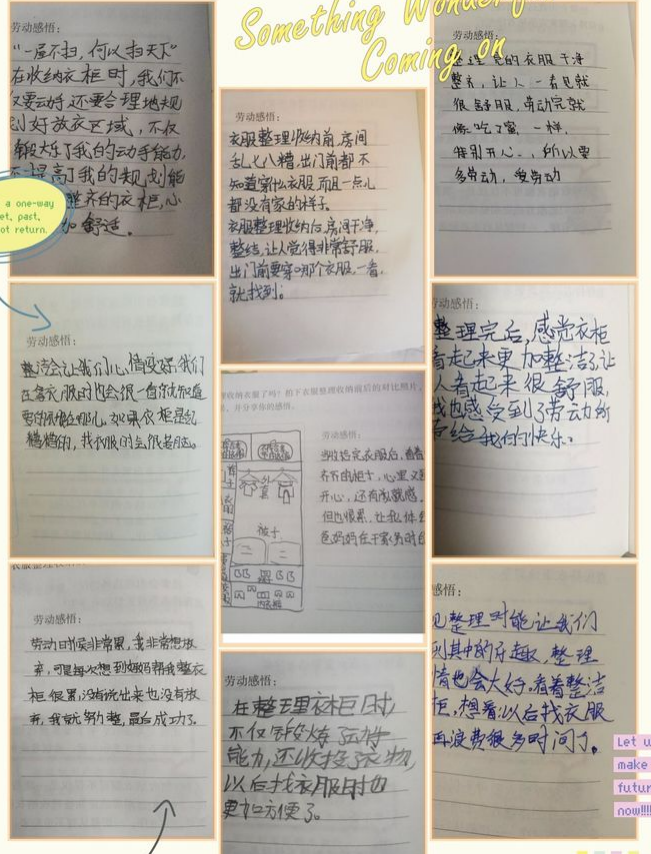 Something Wonderf
Coming on
劳动感悟：
“一屋不扫，何以扫天下”
在收纳衣柜时，我们不
仅要动手，还要合理地规
划好放衣区域，不仅
锻炼了我的动手能力，
还提高了我的规划能
整齐的衣柜，心
舒适。
a one-way
et, past,
ot return.
劳动感悟：
衣服整理收纳前，房间
乱七八糟，出门前都不
知道穿什么衣服，而且一点儿
都没有家的样子。
衣服整理收纳后，房间干净，
整结，让人觉得非常舒服，
出门前要穿哪个衣服，一看，
就找到。
劳动感悟：
整理完的衣服干净
整齐，让人一看见就
很舒服，劳动完就
像吃了蜜一样，
特别开心，所以要
多劳动，爱劳动
劳动感悟：
整洁会让我们心情变好，我们
在拿衣服时也会很一看就知道
要的服饰在哪儿，如果衣柜是乱
糟糟的，我找服时会很老脑。
收纳衣服了吗？拍下衣服整理收纳前后的对比照片，
并分享你的感悟。
劳动感悟：
完衣服后，看着
齐齐的柜子，心里又
开心，还有成就感。
但也很累，让我体
爸妈妈在干家务时的
被子
劳动感悟：
整理完后，感觉衣柜
看起来更加整洁了，让
人看起来很舒服，
我也感受到了劳动所
带给我们的快乐。
劳动感悟：
劳动时候非常累，我非常想放
弃，可是每次想到妈妈帮我整衣
柜很累，没有说出来也没有放
弃，我就努力整，最后成功了。
劳动感悟：
在整理衣柜时，
不仅锻炼了动手
能力，还收获了衣物，
以后找衣服时也
更加方便了。
感悟：
整理时能让我们
到其中的乐趣，整理
情也会大好。看着整洁
柜，想着以后找衣服
再浪费很多时间了。
Let u
make
futur
now!!!!